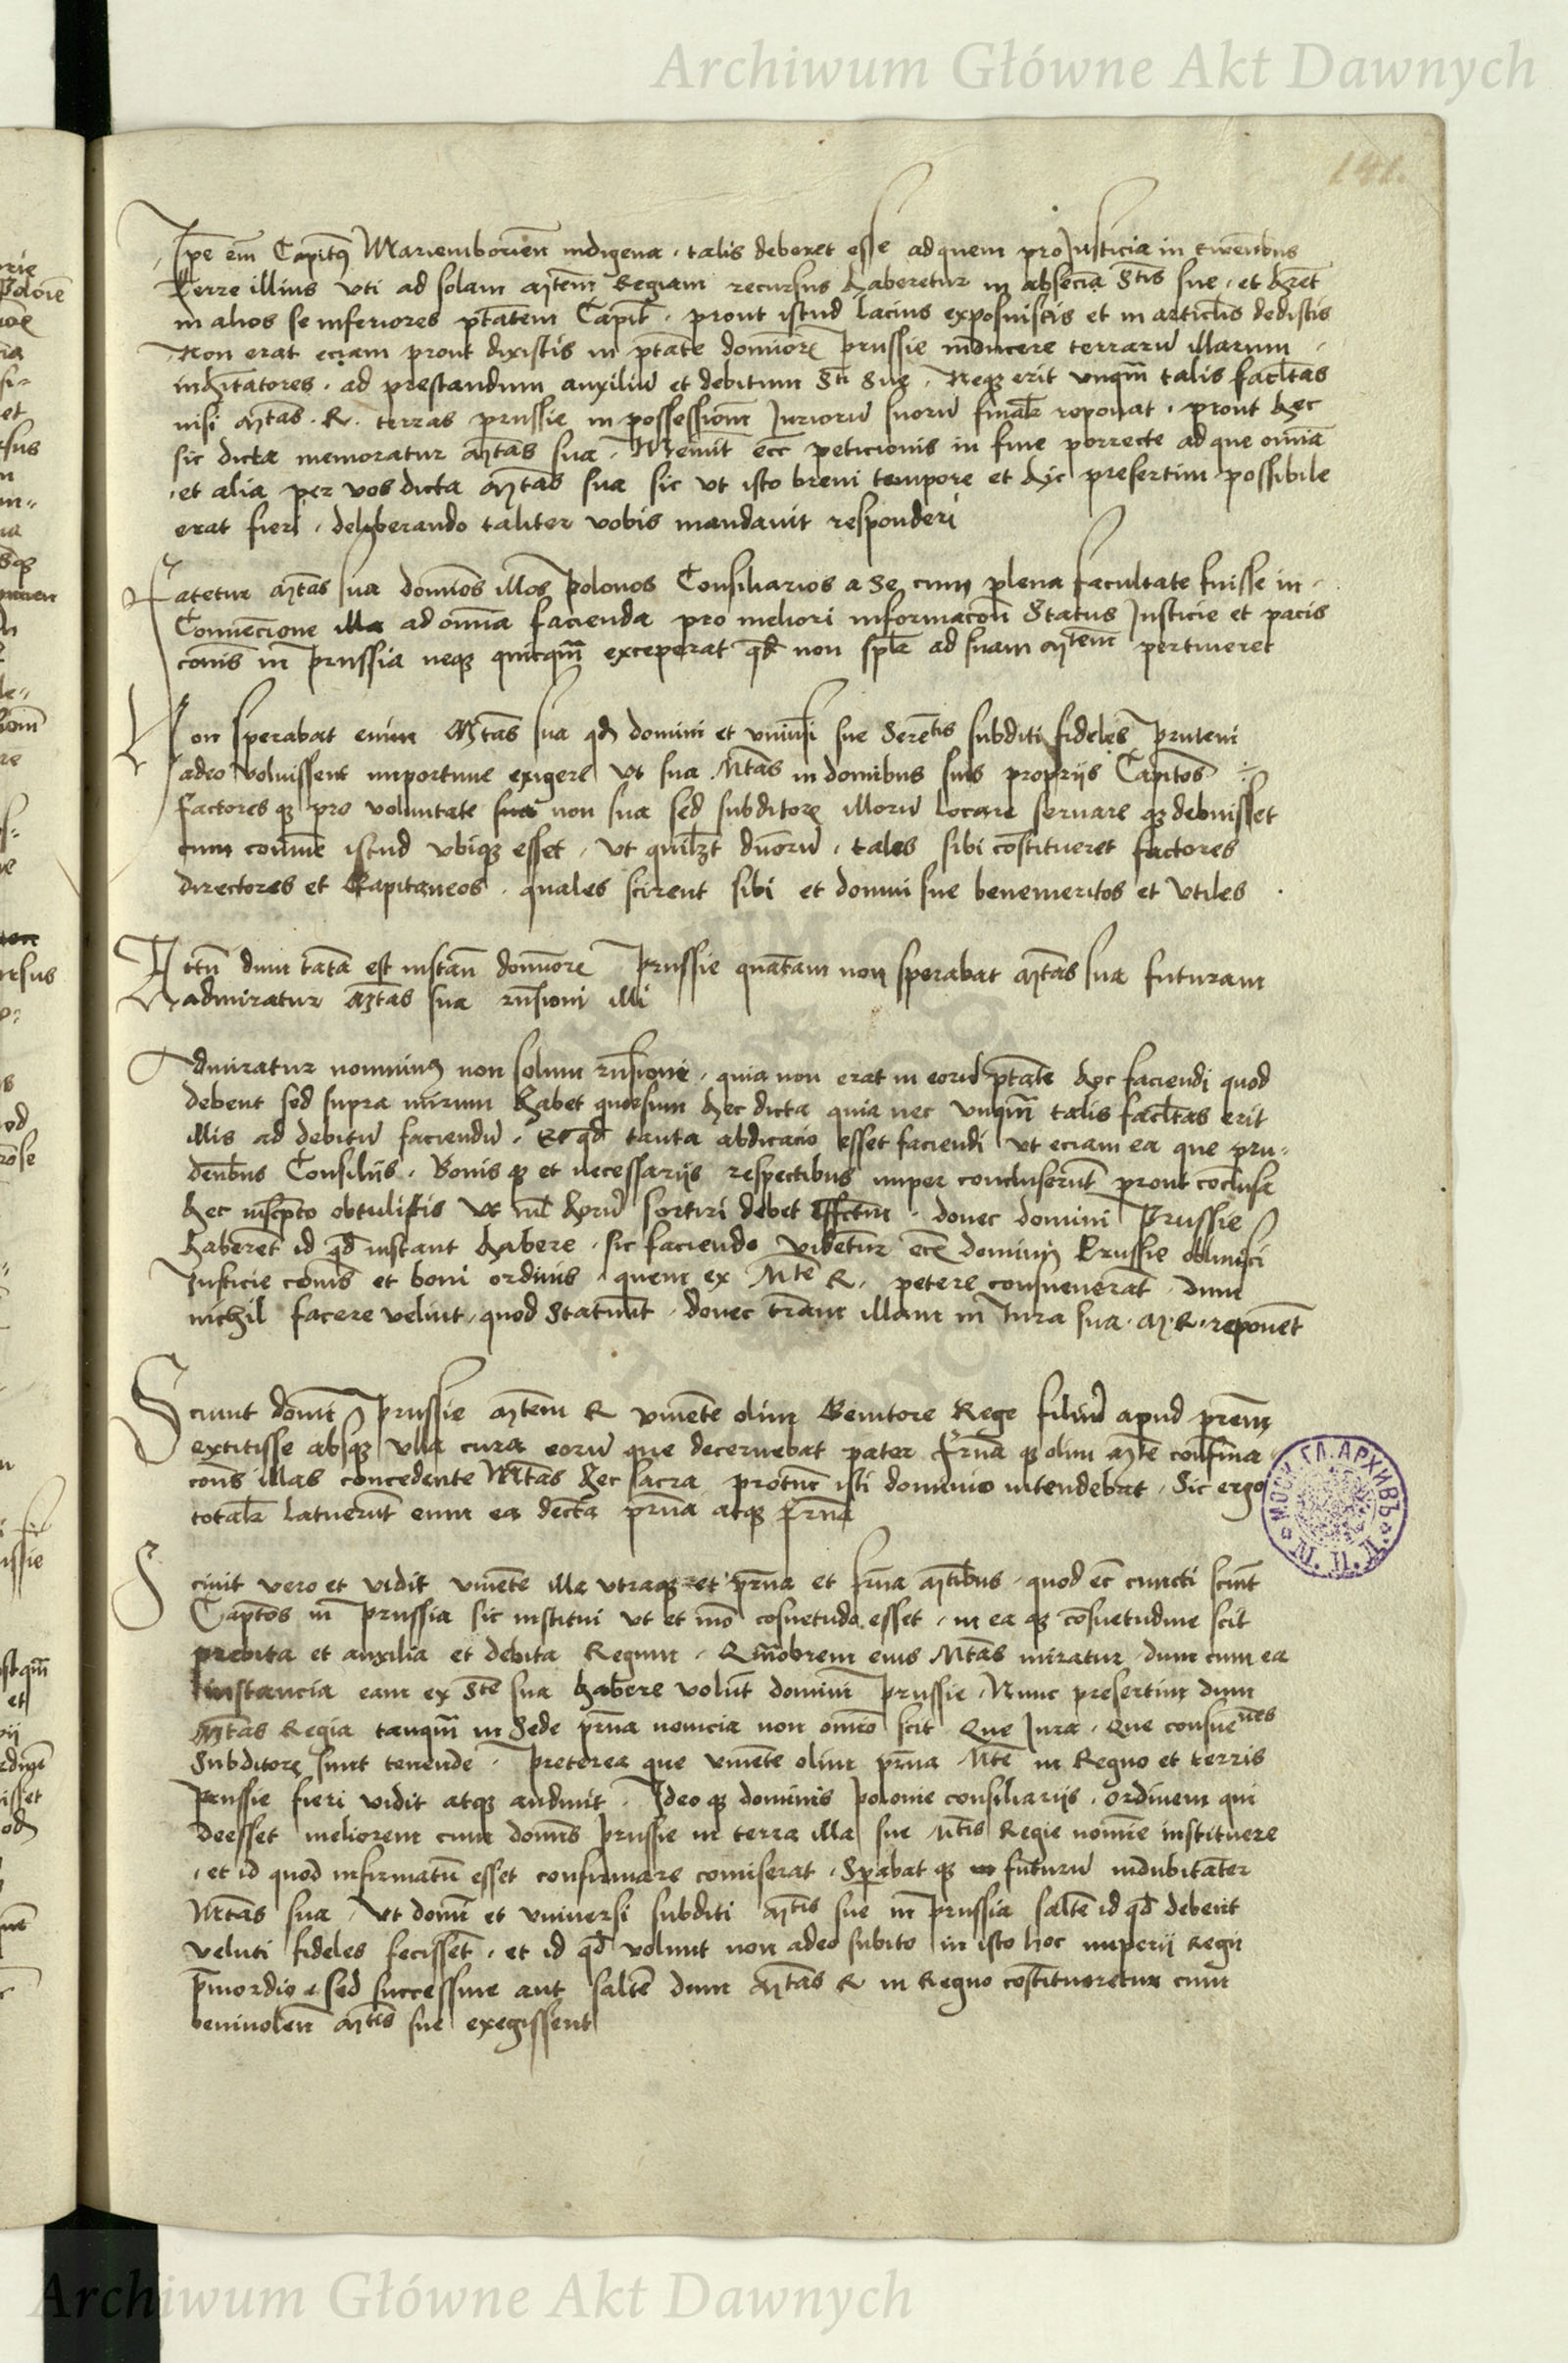 Archiwum Główne Akt Dawnych
141.
Ipē em̄ Capitꝰ Mariemborień indigena. talis deberet esse ad quem pro Justicia in
Terre illius vti ad solam mtem Regiam recursus haberetur in absēcia Stis sue. et hret
in alios se inferiores ptatem Capit. prout istud lacius exposuistis et in articlis dedistis
Non erat eciam prout dixistis in ptate dominor Prussie inducere terraru illarum
inhitatores. ad prestandum auxiliu et debitum Sti Sue. Neqз erit vnqm talis facltas
nisi mtas. R. terras prussie in possessionem Juriorū suorū finalr reponat. prout hec
sic dicta memoratur mtas sua. Memit ecc peticionis in fine porrecte ad que omia
et alia per vos dicta mtas sua sic vt isto breui tempore et hic presertim possibile
erat fieri. deliberando taliter vobis mandauit responderi
Fatetur mtas sua dominos illos Polonos Consiliarios a se cum plena facultate fuisse in
Conuencione illa ad omnia facienda pro meliori informacoē Status Justicie et pacis
cois in Prussia neqз quicqm exceperat qd non splr ad suam mtem pertineret
Non sperabat enim Mtas sua qd domini et vniusi sue Serētis subditi fideles Pruteni
adeo voluissent importune exigere vt sua Mtas in domibus suis proprijs Capitos
factoresqз pro voluntate non sua sed subditor illorū locare seruareqз debuisset
cum coē istud vbiqз esset. vt quilꝫt dnorū. tales sibi costitueret factores
directores et Capitaneos. quales scirent sibi et domui sue benemeritos et vtiles
dum tata est instan dominor Prussie quatam non sperabat mtas sua futuram
admiratur Mtas sua rnsioni illi
Admiratur nominus non solum rnsioni. quia non erat in eorū ptate hec faciendi quod
debent sed supra mirum habet quesum hec dicta quia nec vnqm talis facltas erit
illis ad debitū faciendū. Et qd tanta abdicacio esset faciendi vt eciam ea que pru=
detibus Consilijs. Bonisqз et necessarijs respectibus nuper concluserūt prout coclusa
hec inscpto obtulistis vt nil horū sortiri debet effctum. donec domini Prussie
haberet id qd instant habere. sic faciendo videntur ecc domini Prussie obliuisci
Justicie cois et boni ordinis. quem ex Mte R. petere consueuerat. dum
nichil facere velint. quod Statuūt. donec tram illam in Jura sua. M. R. reponet
Sciunt domi Prussie mtem R viuete olim Genitore Rege filiū apud prem
extitisse absqз vlla cura eorū que decernebat pater Frnaqз olim Mte confirma
cons illas concedente Mtas hec sacra protunc isti dominio intendebat. Sic ergo
totalr latuerūt eum ea dccta prna atqз frna
Sciuit vero et vidit viuete illa vtraqз et prna et frna Mtibus. quod ec cuncti sciūt
Captos in Prussia sic institui vt et mo cosuetudo esset. in eaqз cosuetudine scit
prebita et auxilia et debita Regum. Qmobrem eius Mtas miratur dum cum ea
instancia eam ex Ste sua habere volūt domini Prussie. Nunc presertim dum
Mtas Regia tanqm in Sede prna nouicia non omio scit Que Jura. Que consueues
Subditor sunt tenende. Preterea que viuete olim prna Mte in Regno et terris
Prussie fieri vidit atqз audiuit. Ideoqз dominis Polonie consiliarijs. ordinem qui
deesset meliorem cum domis Prussie in terra illa sue Mtis Regie nomine instituere
et id quod infirmatū esset confirmare comiserat. Spabatqз futurū indubitater
Mtas sua. vt domi et vniuersi subditi Mtis sue in Prussia salte id qd debeūt
veluti fideles fecisset. et id qd volunt non adeo subito in isto hoc imperij Regij
pmordio. sed successiue aut salte dum Mtas R in Regno costitueretur cum
beniuoleu Mtis sue exegissent
МОСК. ГЛ. АРХИВЪ
Archiwum Główne Akt Dawnych